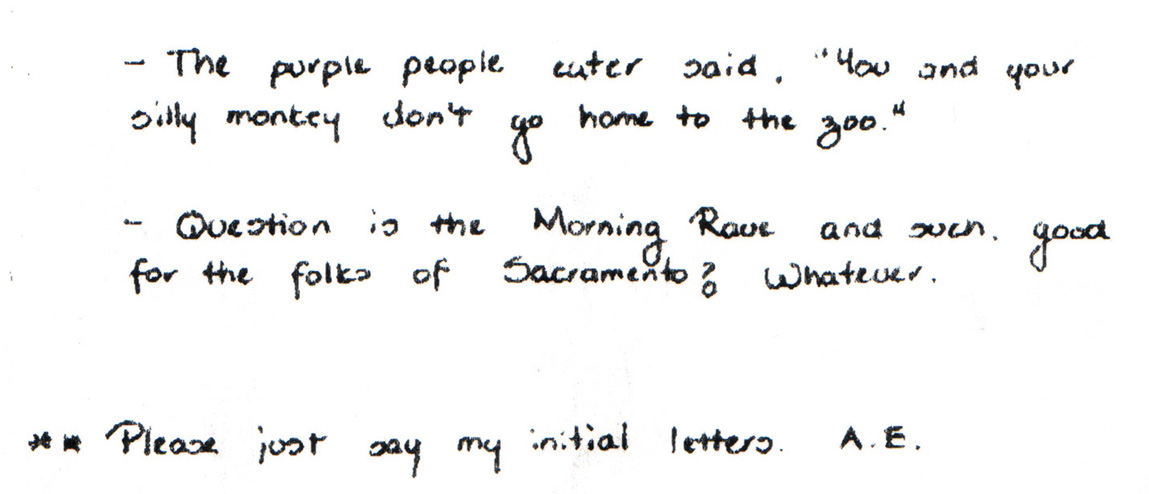 - The purple people eater said, "You and your
silly monkey don't go home to the zoo."
- Question is the Morning Rave and such. good
for the folks of Sacramento? Whatever.
** Please just say my initial letters. A.E.